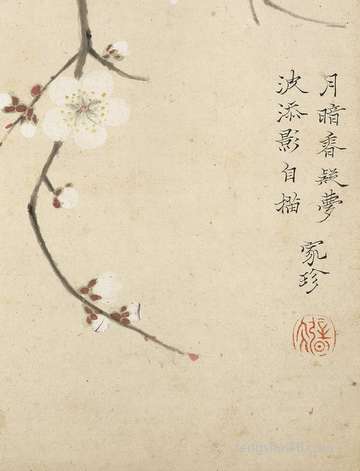 月暗香疑夢
波添影自描
家珍